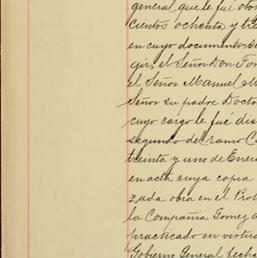 general que le fué otor
cientos ochenta y tre
en cuyo documento se
gir; el Señor Don Tom
el Señor Manuel M
Señor su padre Doctor
cuyo cargo le fué dis
segundo de ramo C
treinta y uno de Enero
en acta cuya copia
zada obra en el Prot
la Compañia Gomez a
practicado en virtud
Gobierno General fecha